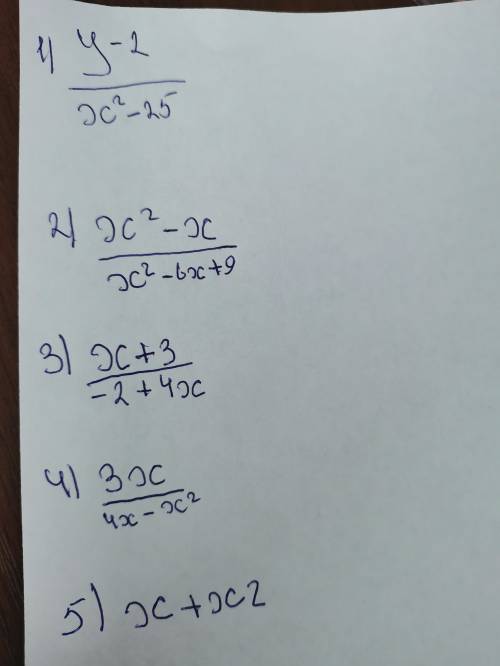 1) y-2
x²-25
2) x²-x
x²-6x+9
3) x+3
-2+4x
4) 3x
4x-x²
5) x+x2